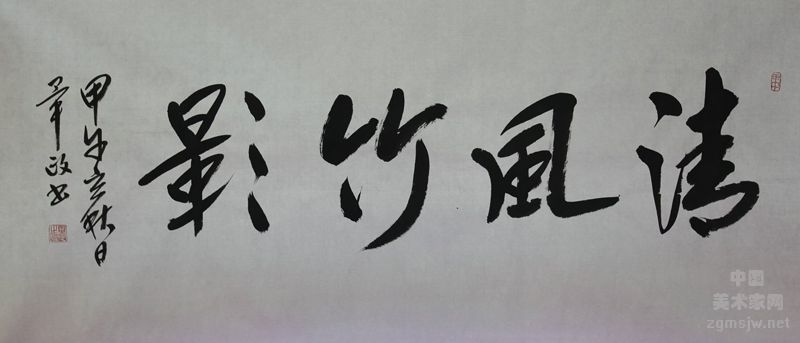 清風竹影
甲午立秋日
政书
中国
美术家网
zgmsjw.net